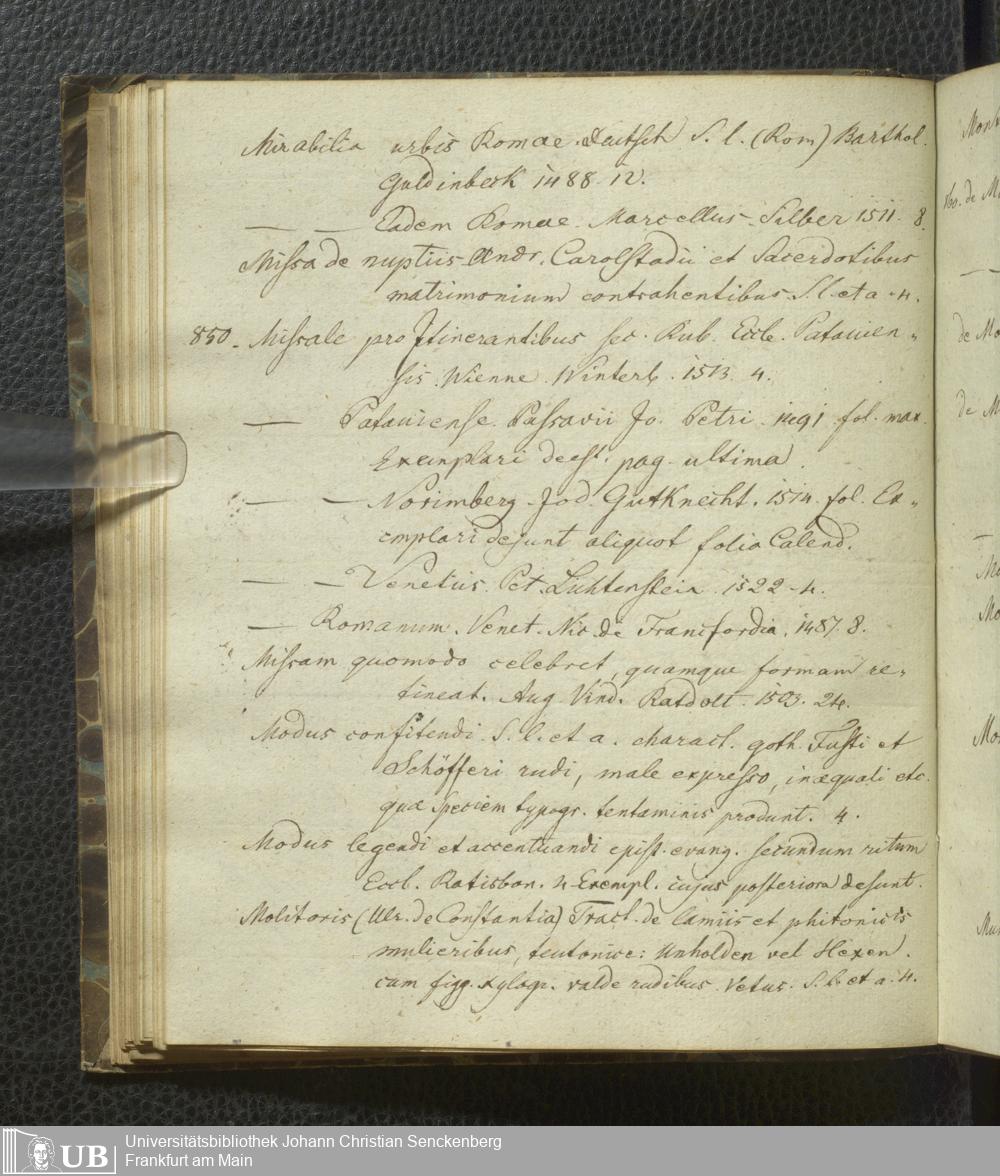 Mirabilia urbis Romae. Deutsch S. l. (Rom) Barthol.
Guldinbeck 1488. 12.
— — Eadem Romae. Marcellus Silber 1511. 8.
Missa de nuptiis Andr. Carolstadii et Sacerdotibus
matrimonium contrahentibus. S. l. et a. 4.
850. Missale pro Itinerantibus sec. Rub. Eccle. Patauien-
sis. Wienne. Winterb. 1513. 4.
— Patauiense. Passavii Jo. Petri. 1491. fol. max.
Exemplari deest. pag. ultima.
— — Norimberg. Jod. Gutknecht. 1514. fol. Ex-
emplari desunt aliquot folia Calend.
— — Venetiis. Pet. Lichtenstein. 1522. 4.
— Romanum. Venet. Nic. de Francfordia. 1487. 8.
Missam quomodo celebret, quamque formam re-
tineat. Aug. Vind. Ratdolt. 1503. 24.
Modus confitendi. S. l. et a. charact. goth. Fusti et
Schöfferi rudi, male expresso, inæquali etc.
quæ speciem typogr. tentaminis produnt. 4.
Modus legendi et accentuandi epist. evang. secundum ritum
Eccl. Ratisbon. 4. Exempl. cujus posteriora desunt.
Molitoris (Ulr. de Constantia) Tract. de lamiis et phitonicis
mulieribus, teutonice: Unholden vel Hexen.
cum figg. xylogr. valde rudibus. Vetus. S. l. et a. 4.
Universitätsbibliothek Johann Christian Senckenberg
Frankfurt am Main
UB